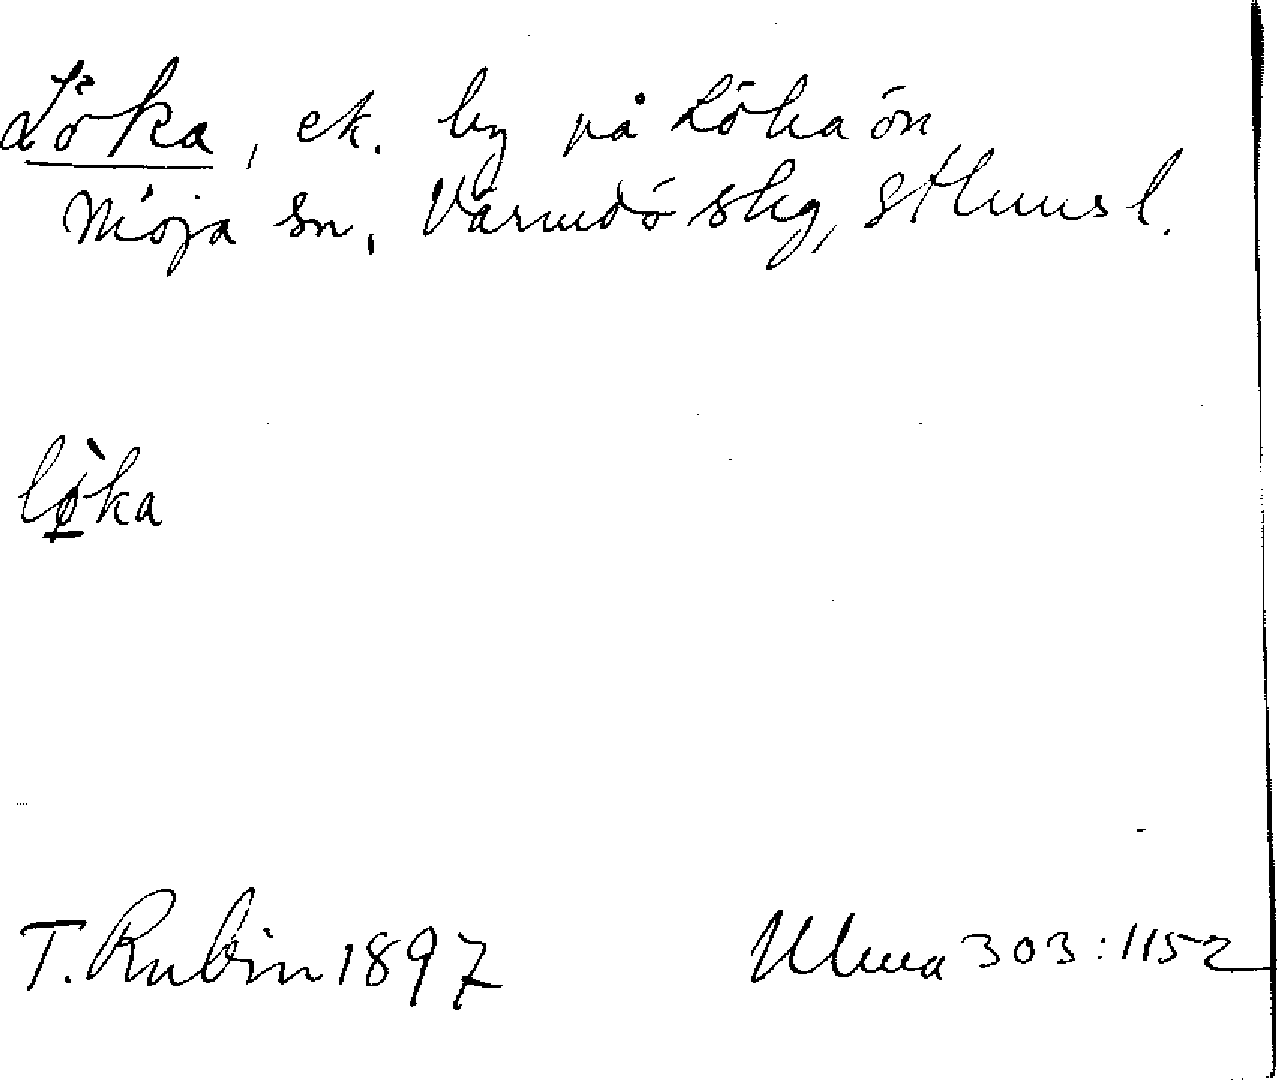 Löka, ek. by på Lökaön
Möja sn, Värmdö skg, Sthms l.
lø̀ka
T. Rubin 1897
Ulma 303:1152